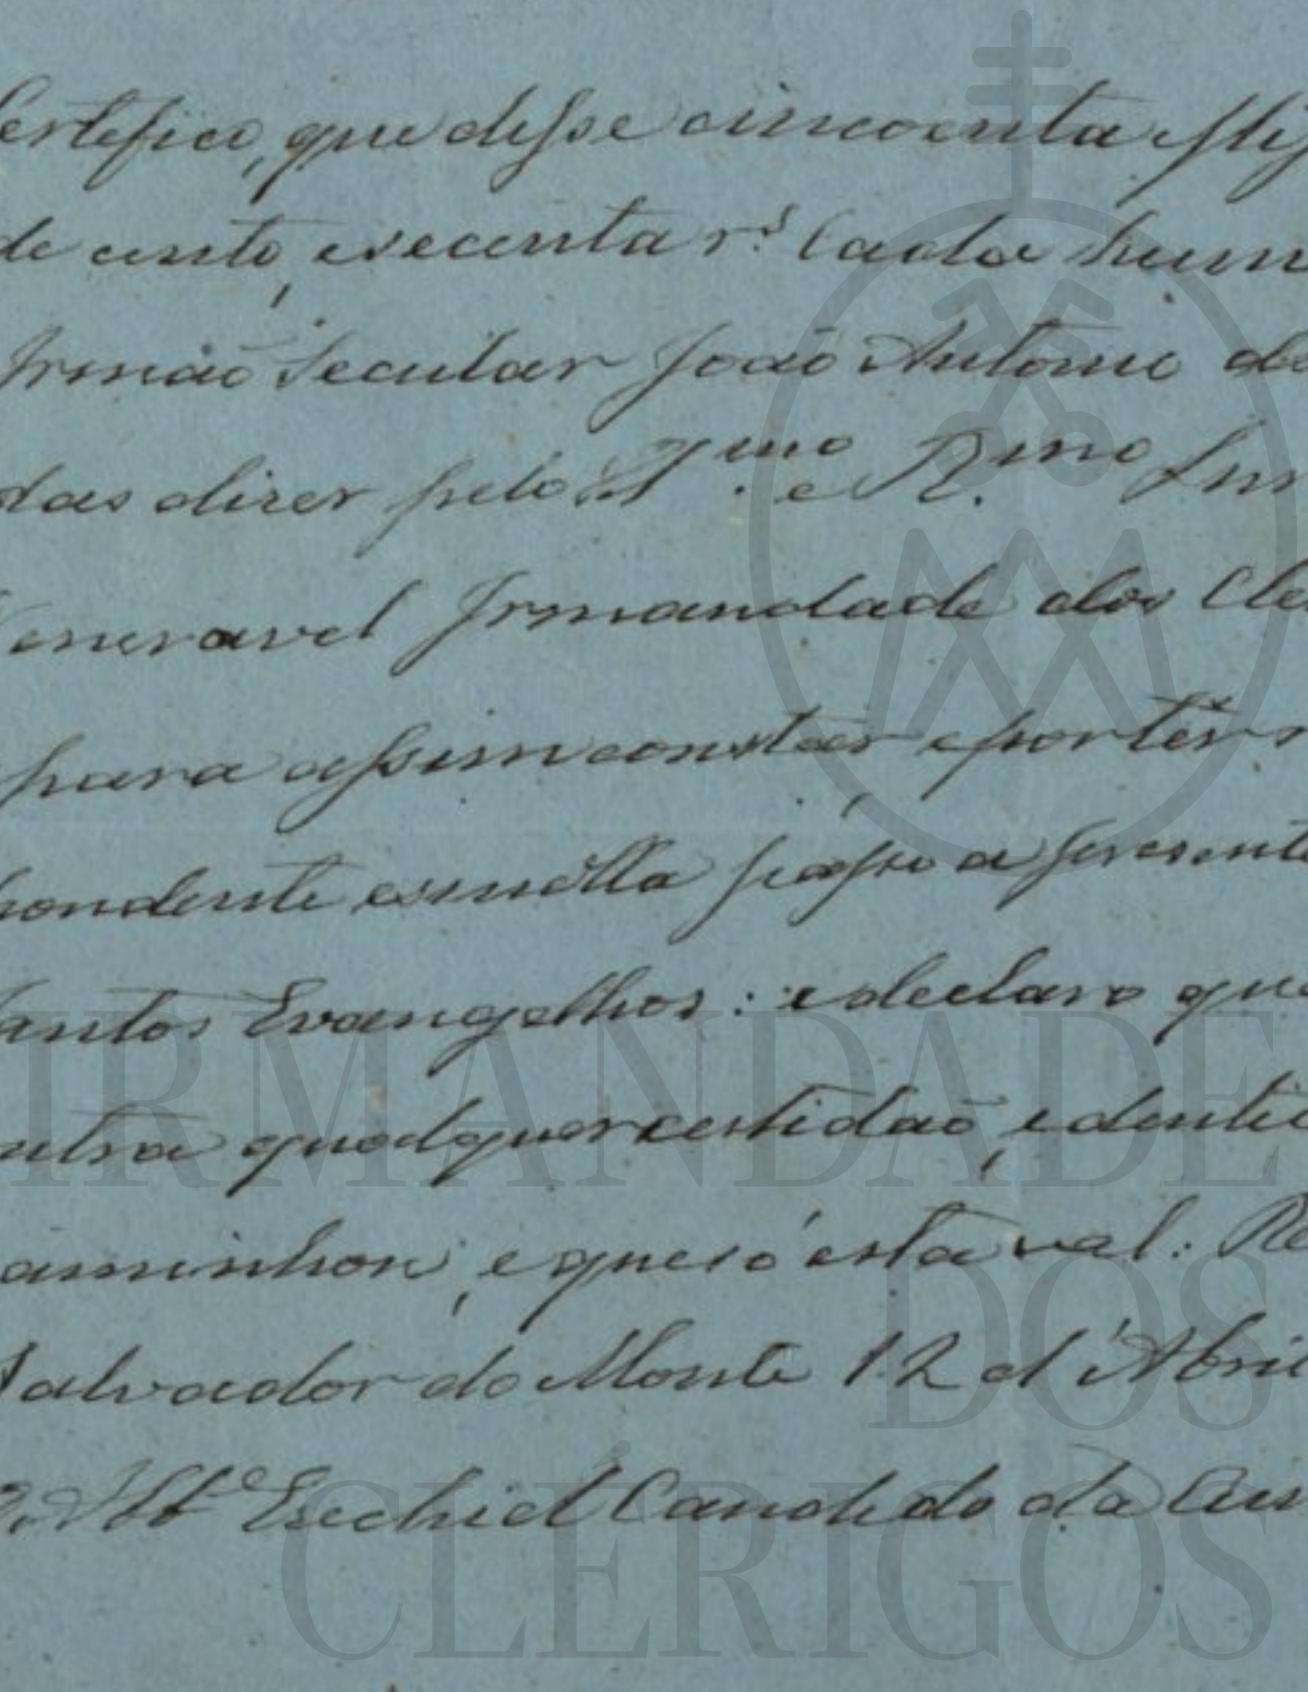 Certifico, que disse cincoenta Miss
de cento, e secenta r.s Cada hum
Irmão Secular João Antonio da
das dizer pelo Ill.mo e R.mo Snr
Veneravel Irmandade dos Cle
para assim constar, e por ter r
pondente esmolla passo a presente
Santos Evangelhos: e declaro que
outra qualquer certidão, e denti
caminhou, e que só esta val: Re
Salvador do Monte 12 d'Abril
O Abb.e Ezechiel Candido da Cun
IRMANDADE
DOS
CLÉRIGOS